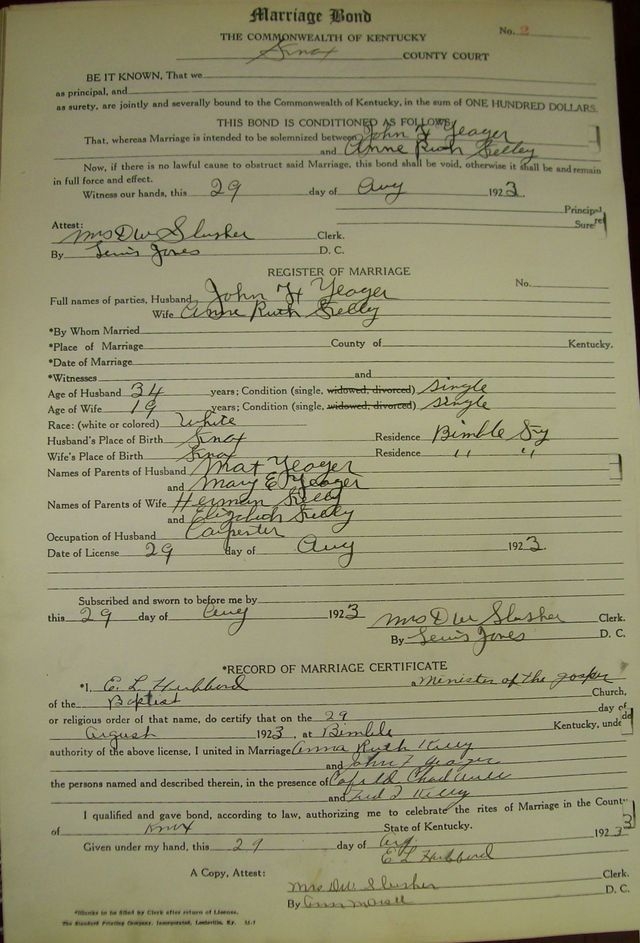 Marriage Bond
No. 2
THE COMMONWEALTH OF KENTUCKY
Knox COUNTY COURT
BE IT KNOWN, That we
as principal, and
as surety, are jointly and severally bound to the Commonwealth of Kentucky, in the sum of ONE HUNDRED DOLLARS.
THIS BOND IS CONDITIONED AS FOLLOWS
That, whereas Marriage is intended to be solemnized between John Yeager
and Anne Ruth
Now, if there is no lawful cause to obstruct said Marriage, this bond shall be void, otherwise it shall be and remain
in full force and effect.
Witness our hands, this 29 day of Aug 1923.
Principal
Sure
Attest:
Mrs DW Slusher Clerk.
By Lewis Jones D. C.
REGISTER OF MARRIAGE
No.
Full names of parties, Husband John Yeager
Wife Anne Ruth
*By Whom Married
*Place of Marriage County of Kentucky.
*Date of Marriage
*Witnesses and
Age of Husband 34 years; Condition (single, widowed, divorced) Single
Age of Wife 19 years; Condition (single, widowed, divorced) Single
Race: (white or colored) White
Husband's Place of Birth Knox Residence Bimble Ky
Wife's Place of Birth Knox Residence " "
Names of Parents of Husband Mat Yeager
and Mary E Yeager
Names of Parents of Wife Herman
and Elizabeth
Occupation of Husband Carpenter
Date of License 29 day of Aug 1923.
Subscribed and sworn to before me by
this 29 day of Aug 1923 Mrs DW Slusher Clerk.
By Lewis Jones D. C.
*RECORD OF MARRIAGE CERTIFICATE
*I, E. L. Hubbard a Minister of the Gosper
of the Baptist Church,
or religious order of that name, do certify that on the 29 day of
August 1923, at Bimble Kentucky, unde
authority of the above license, I united in Marriage Anna Ruth Kelly
and John
the persons named and described therein, in the presence of
and Kelly
I qualified and gave bond, according to law, authorizing me to celebrate the rites of Marriage in the Count
of Knox State of Kentucky.
Given under my hand, this 29 day of Aug. 1923
E L Hubbard
A Copy, Attest: Clerk.
Mrs DW Slusher D. C.
By
*Blanks to be filled by Clerk after return of License.
The Standard Printing Company, Incorporated, Louisville, Ky.